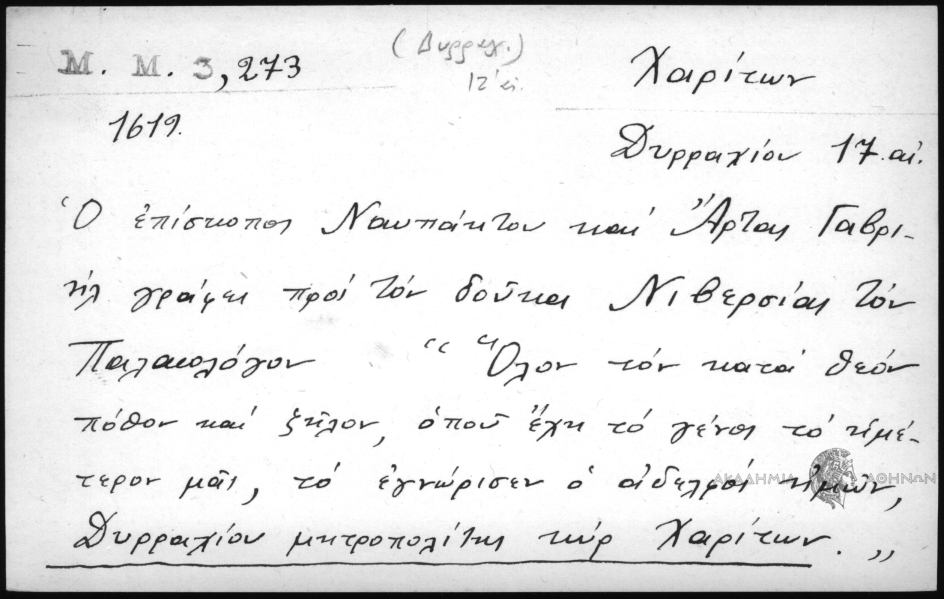 Μ. Μ. 3, 273 (Δυρραχ.) Χαρίτων
1619. Δυρραχίου 17. αἰ.
Ὁ ἐπίσκοπος Ναυπάκτου καί Ἄρτας Γαβρι-
ήλ γράφει πρός τόν δοῦκας Νιβερσίας τόν
Παλαιολόγον “ Ὅλον τόν κατά θεόν
πόθον καί ζῆλον, ὁποῦ ἔχη τό γένος τό ἡμέ-
τερον μᾶς, τό ἐγνώρισεν ὁ ἀδελφός ἡμῶν,
Δυρραχίου μητροπολίτης κύρ Χαρίτων. „
ΑΚΑΔΗΜΙΑ ΑΘΗΝΩΝ